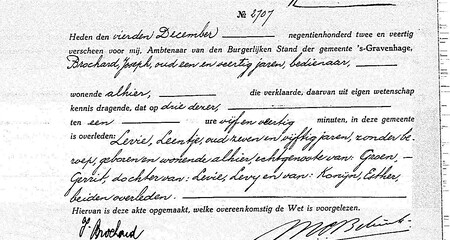 № 2707
Heden den vierden December negentienhonderd twee en veertig
verscheen voor mij, Ambtenaar van den Burgerlijken Stand der gemeente 's-Gravenhage,
Brochard, Joseph, oud een en veertig jaren, bedienaar,
wonende alhier, die verklaarde, daarvan uit eigen wetenschap
kennis dragende, dat op drie dezer,
ten een ure vijf en veertig minuten, in deze gemeente
is overleden: Levie, Leentje, oud zeven en vijftig jaren, zonder be-
roep, geboren en wonende alhier, echtgenoote van: Groen, –
Gerrit, dochter van: Levie, Levy en van: Konijn, Esther,
beiden overleden.
Hiervan is deze akte opgemaakt, welke overeenkomstig de Wet is voorgelezen.
J. Brochard